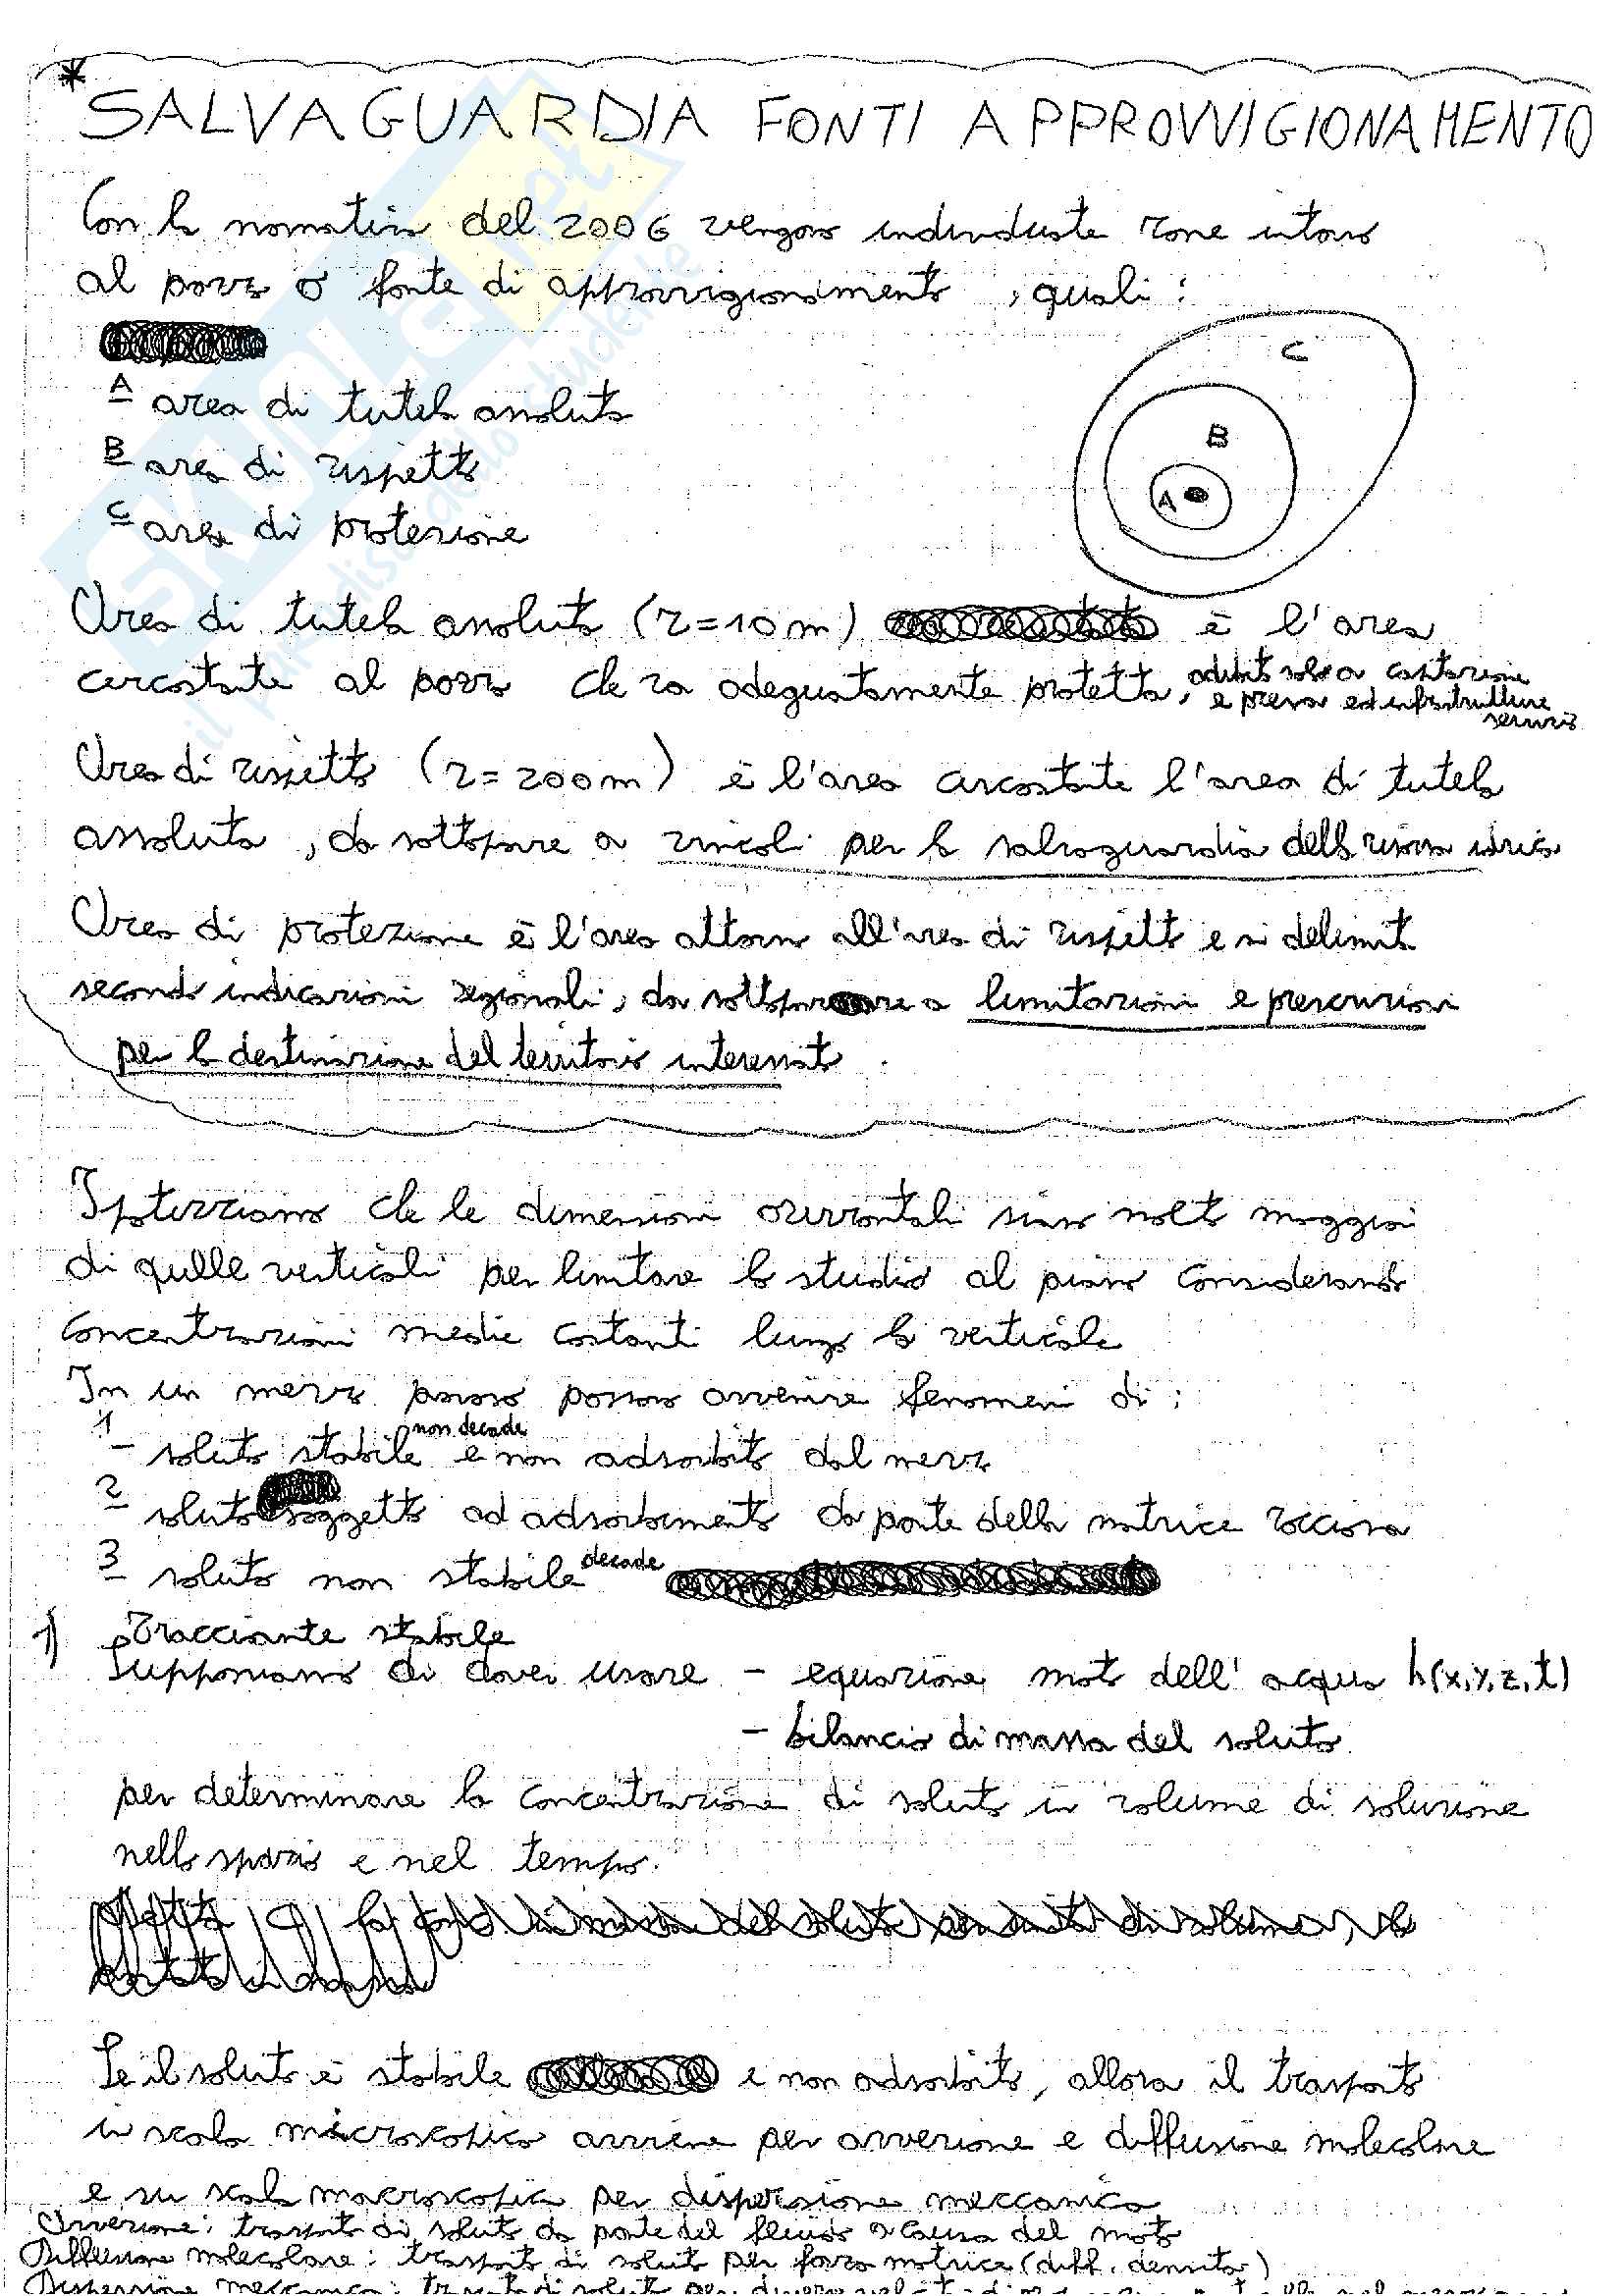 *
SALVAGUARDIA FONTI APPROVVIGIONAMENTO
Con la normativa del 2006 vengono individuate zone intorno
al pozzo o fonte di approvvigionamento, quali:
A area di tutela assoluta
B area di rispetto
C area di protezione
C
B
A
Area di tutela assoluta (r=10m) è l'area
circostante al pozzo che va adeguatamente protetta, adibita solo a captazione
e presa ed infrastrutture
servizio
Area di rispetto (r=200m) è l'area circostante l'area di tutela
assoluta, da sottoporre a vincoli per la salvaguardia della risorsa idrica
Area di protezione è l'area attorno all'area di rispetto e si delimita
secondo indicazioni regionali, da sottoporre a limitazioni e prescrizioni
per la destinazione del territorio interessato.
Ipotizziamo che le dimensioni orizzontali siano molto maggiori
di quelle verticali per limitare lo studio al piano considerando
concentrazioni medie costanti lungo la verticale
In un mezzo poroso possono avvenire fenomeni di:
1 - soluto stabile non decade e non adsorbito dal mezzo
2 - soluto soggetto ad adsorbimento da parte della matrice rocciosa
3 - soluto non stabile decade
1) Tracciante stabile
Supponiamo di dover usare - equazione moto dell'acqua h(x,y,z,t)
- bilancio di massa del soluto
per determinare la concentrazione di soluto in volume di soluzione
nello spazio e nel tempo.
Se il soluto è stabile e non adsorbito, allora il trasporto
in scala microscopica avviene per avvezione e diffusione molecolare
e su scala macroscopica per dispersione meccanica
Avvezione: trasporto di soluto da parte del fluido a causa del moto
Diffusione molecolare: trasporto di soluto per forza motrice (diff. densità)
Dispersione meccanica: trasporto di soluto per diverse velocità di